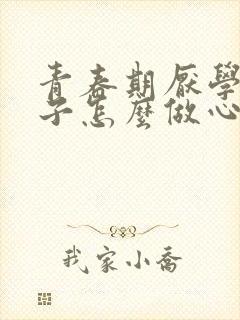 青春期厭學
子怎麼做心
我家小喬